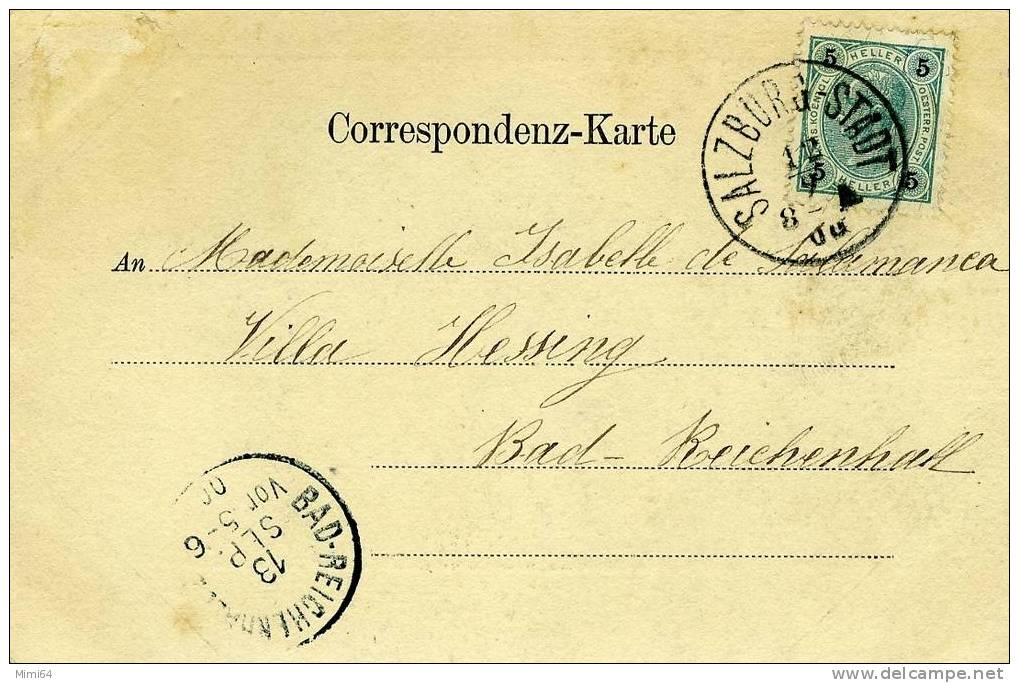 5 HELLER 5
S. KOENIGL. OESTERR. POST.
5 HELLER 5
SALZBURG-STADT
12
8
00
Correspondenz-Karte
An Mademoiselle Isabelle de Salamanca
Villa Hessing
Bad-Reichenhall
BAD-REICHENHALL
13
SEP.
Vor 5-6
00
Mimi64
www.delcampe.net